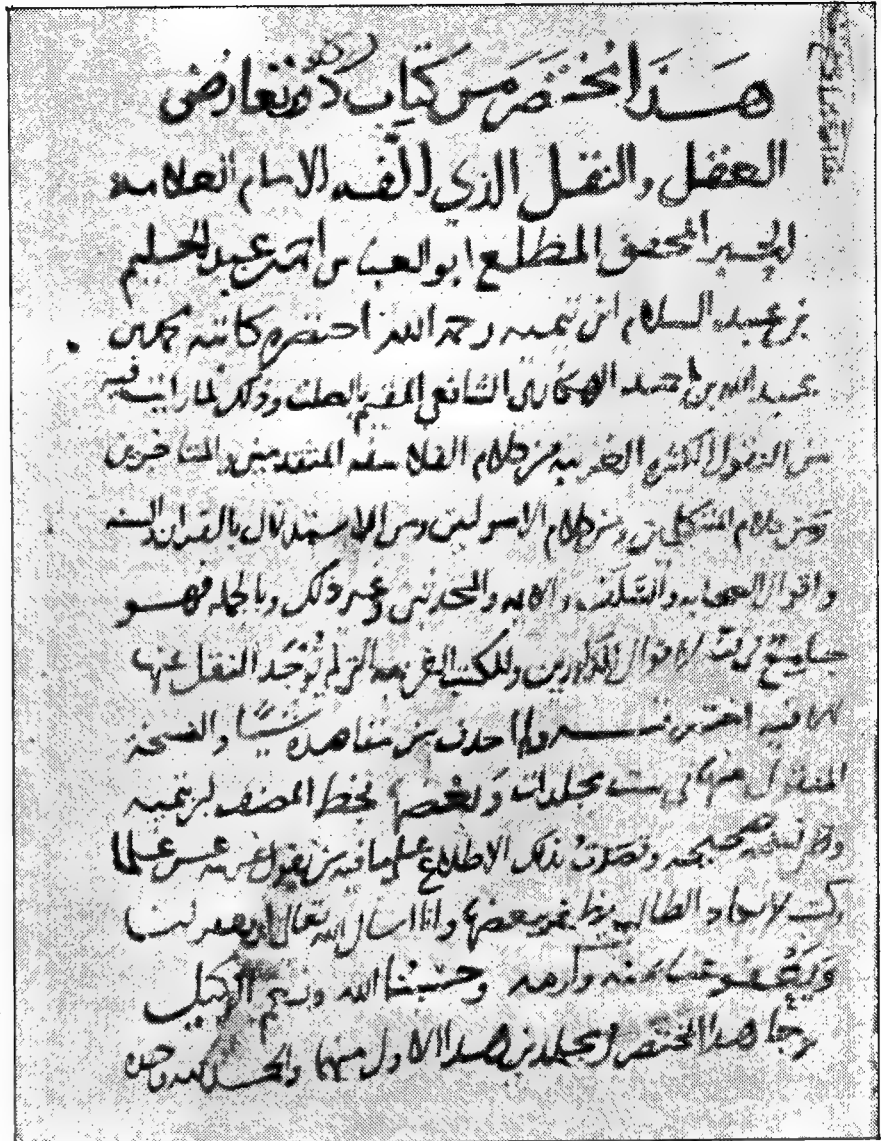 هذا مختصر من كتاب درء تعارض
العقل والنقل الذي ألفه الامام العلامة
الحبر المحقق المطلع ابو العباس احمد بن عبد الحليم
بن عبد السلام ابن تيميه رحمه الله اختصره كاتبه محمد بن
عبد الله بن احمد الهكاري الشافعي المقيم بالصلت وذلك لما رايت فيه
من النقول الكثيرة الغريبه من كلام الفلاسفه المتقدمين والمتاخرين
ومن كلام المتكلمين ومن كلام الاصوليين ومن الاستدلال بالقران والسنه
واقوال الصحابه والسلف والايمه والمحدثين وغير ذلك وبالجمله فهو
جامع لاقوال المذكورين وللكتب الغريبه التي لم يوجد النقل عنها
فيه اختر نفسه ولم احذف من مقاصده شيئا والنسخة
المنقول منها في ست مجلدات وبعضها بخط المصنف ابن تيميه
وهي نسخه صحيحه وقصدت بذلك الاطلاع على ما فيه من نقول غريبه
الطالب يظفر ببعضها وانا اسال الله تعالى ان يغفر لنا
ويعفو عنا بمنه وكرمه وحسبنا الله ونعم الوكيل
وجا هذا المختصر في مجلدين هذا الاول منهما والحمد لله وحده